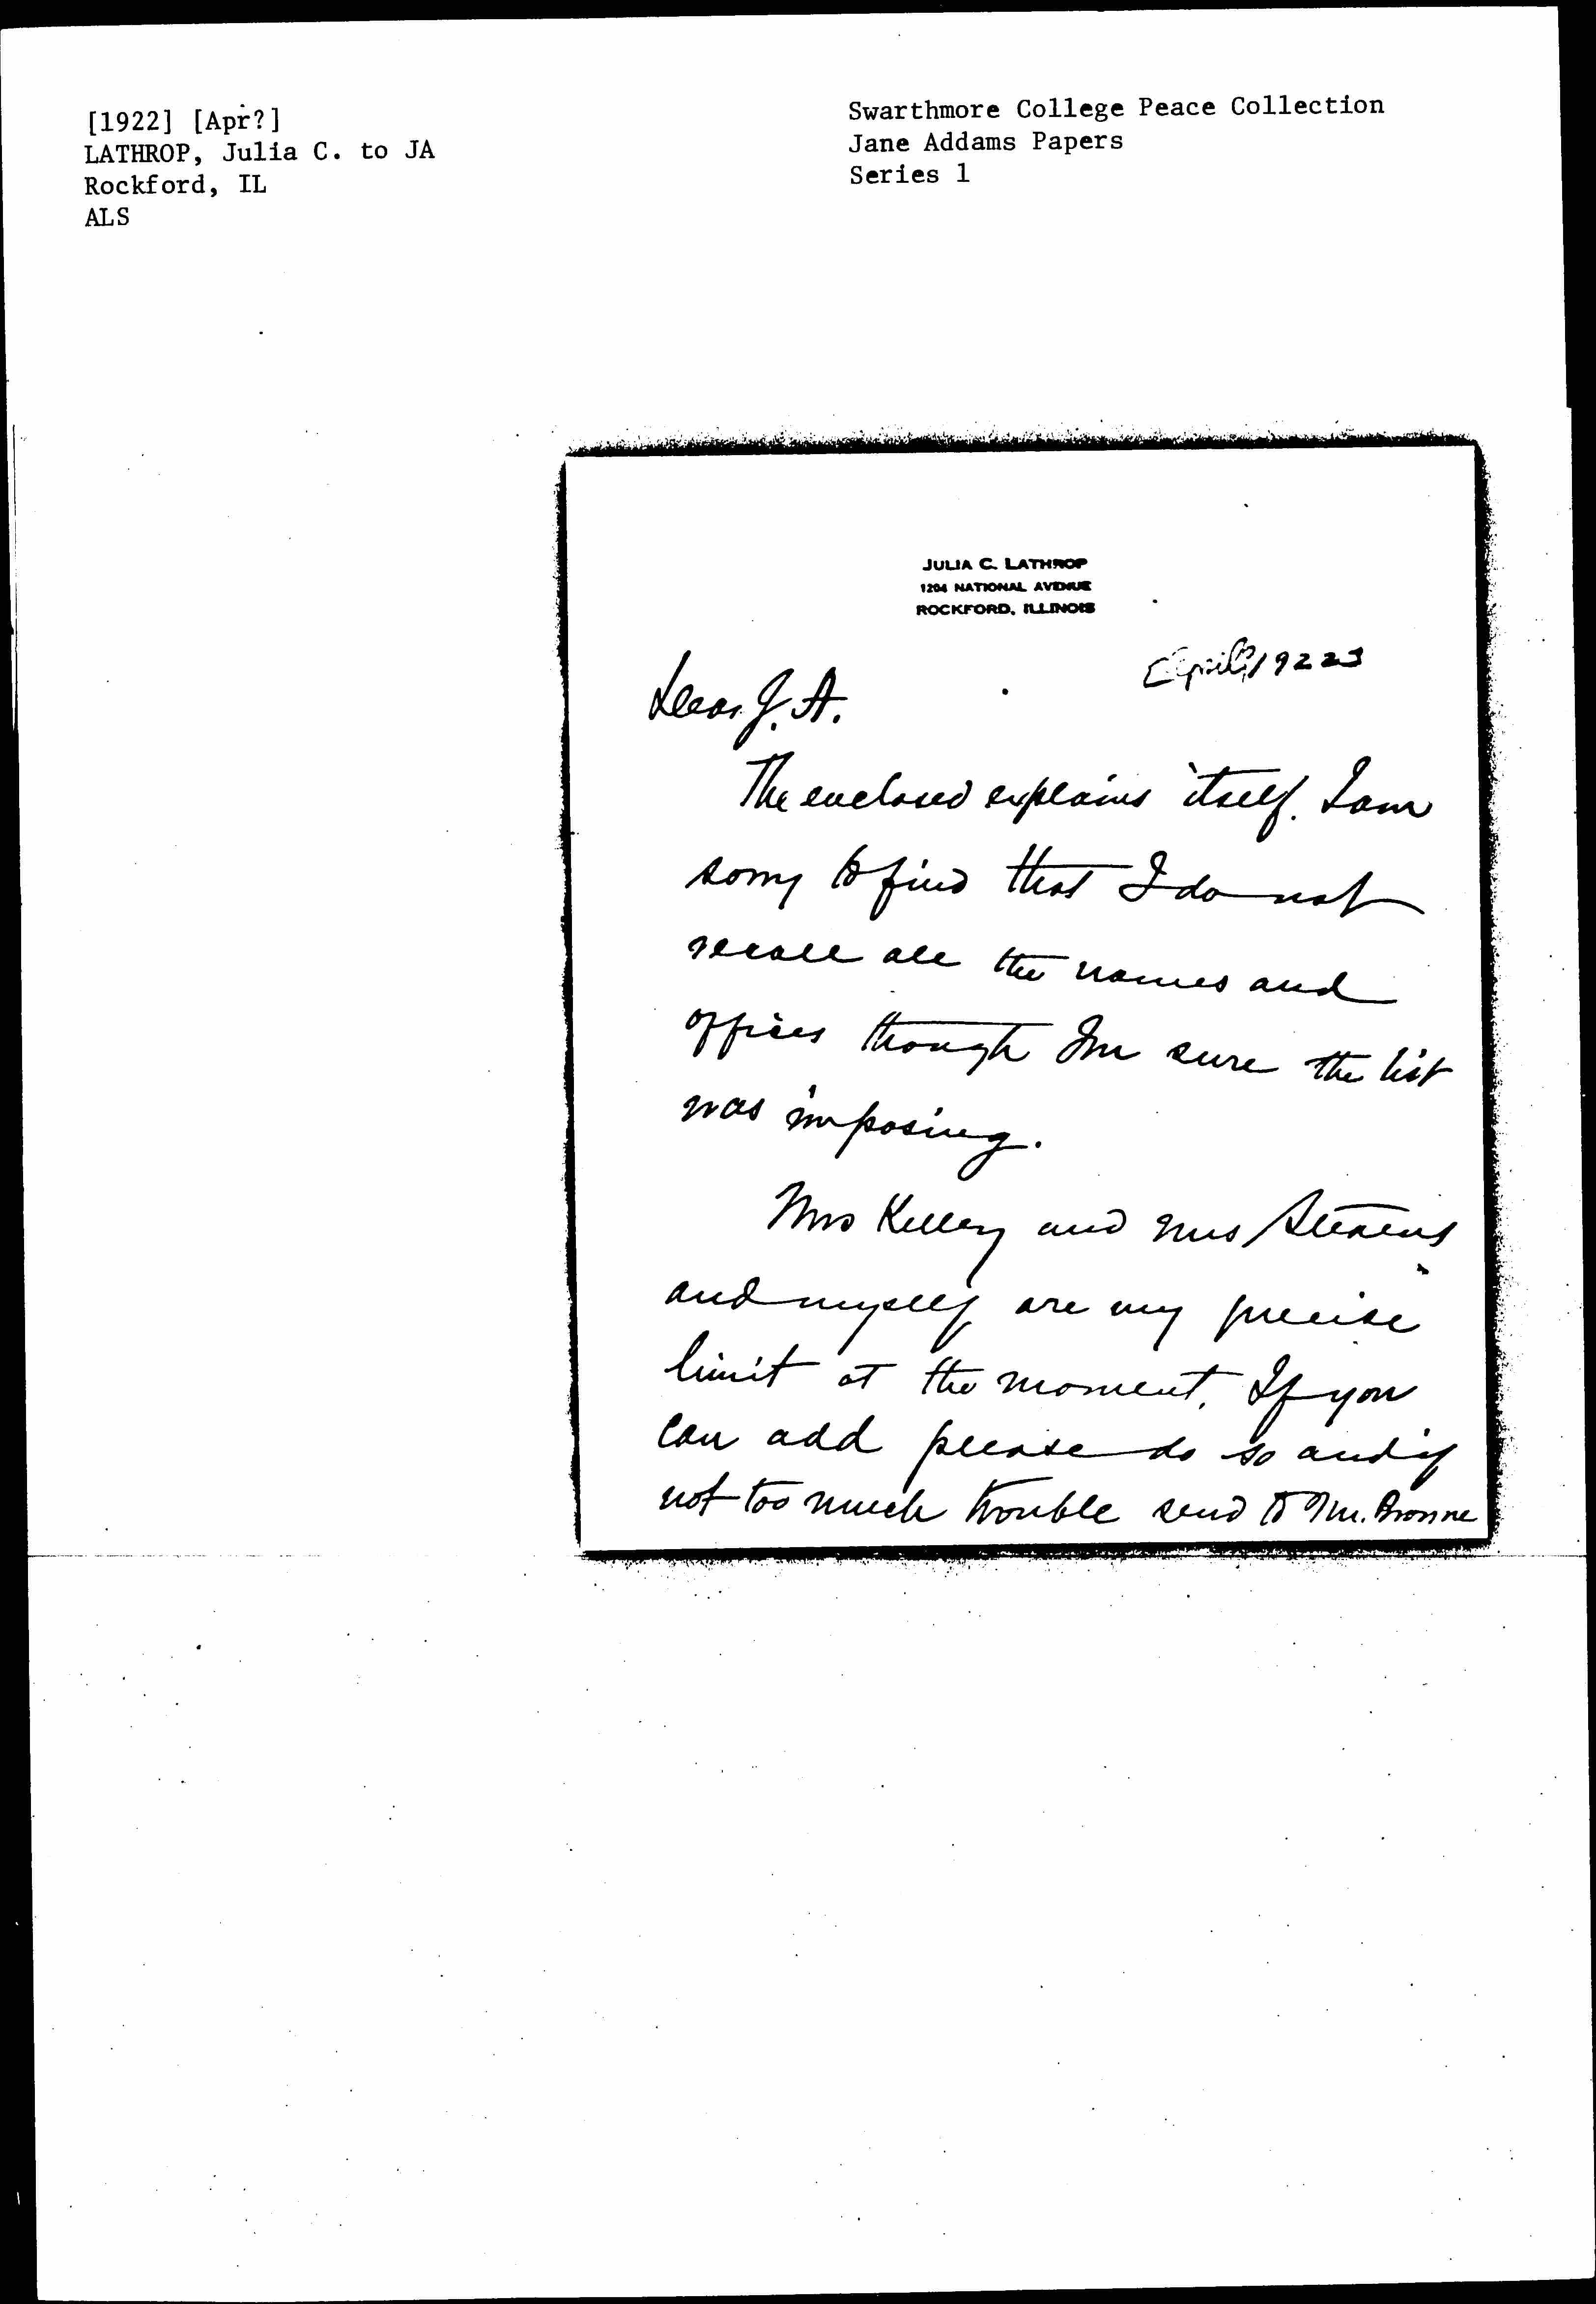 [1922] [Apr?]
LATHROP, Julia C. to JA
Rockford, IL
ALS
Swarthmore College Peace Collection
Jane Addams Papers
Series 1
JULIA C. LATHROP
1204 NATIONAL AVENUE
ROCKFORD, ILLINOIS
[April?] 1922
Dear J. A.
The enclosed explains itself. I am
sorry to find that I do not
recall all the names and
offices though I'm sure the list
was imposing.
Mrs Kelley and Mrs Stevens
and myself are my precise
limit at the moment. If you
can add please do so and if
not too much trouble send to Mr. Browne